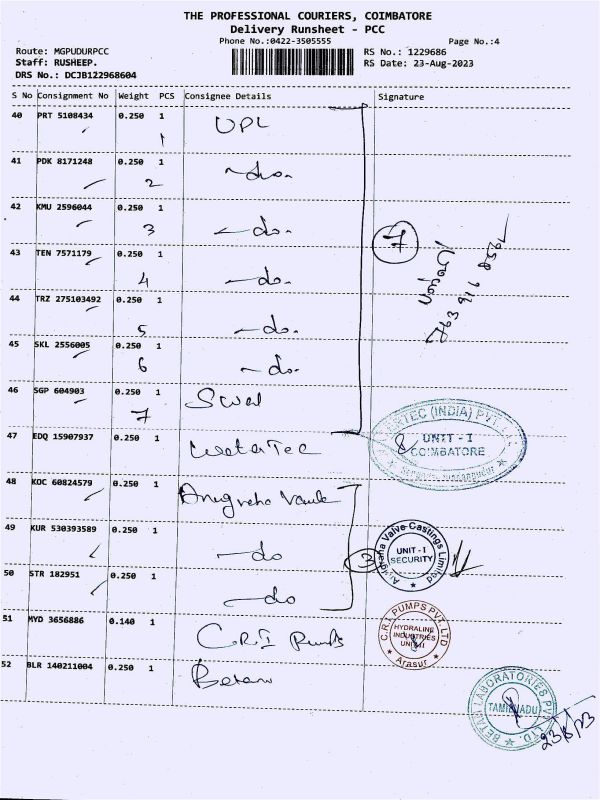 THE PROFESSIONAL COURIERS, COIMBATORE
Delivery Runsheet - PCC
Phone No.:0422-3505555
Page No.:4
Route: MGPUDURPCC
RS No.: 1229686
Staff: RUSHEEP.
RS Date: 23-Aug-2023
DRS No.: DCJB122968604
S No Consignment No Weight PCS Consignee Details Signature
40 PRT 5108434 0.250 1 UPL
1
41 PDK 8171248 0.250 1 -do-
2
42 KMU 2596044 0.250 1 -do-
3
7
43 TEN 7571179 0.250 1 -do-
4
44 TRZ 275103492 0.250 1 -do-
5
45 SKL 2556005 0.250 1 -do-
6
46 SGP 604903 0.250 1 Swal
7
47 EDQ 15907937 0.250 1 WaterTec
(INDIA) PVT.
UNIT - I
COIMBATORE
48 KOC 60824579 0.250 1
49 KUR 530393589 0.250 1 -do
3
Valve Castings Limited
UNIT-I
SECURITY
50 STR 182951 0.250 1 -do
51 MYD 3656886 0.140 1 C.R.I Pumps
C.R.I. PUMPS PVT. LTD
HYDRALINE
INDUSTRIES
UNIT II
Arasur
52 BLR 140211004 0.250 1
LABORATORIES PVT. LTD.
TAMILNADU
23/8/23